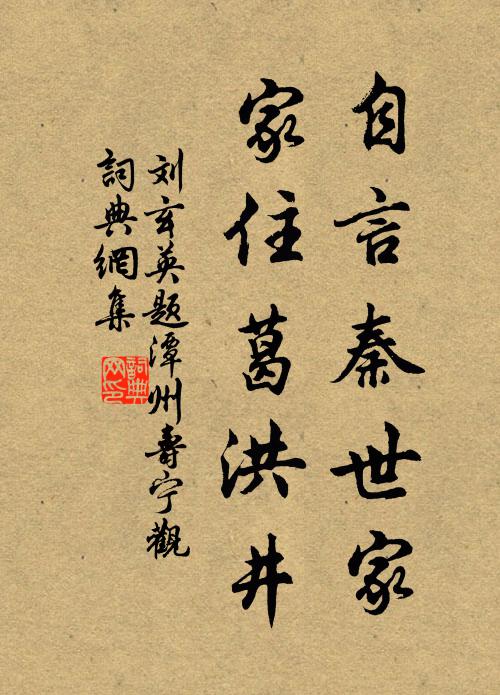 自言秦世家
家住葛洪井
刘玄英题潭州壽宁觀
詞典網集
詞典网印